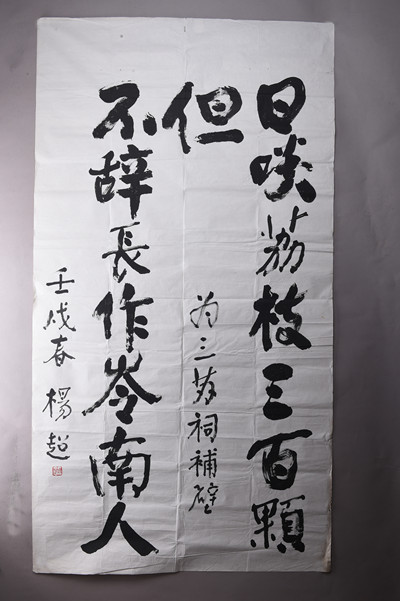 日啖荔枝三百顆
但
为三苏祠補壁
不辞長作岺南人
壬戌春 楊超